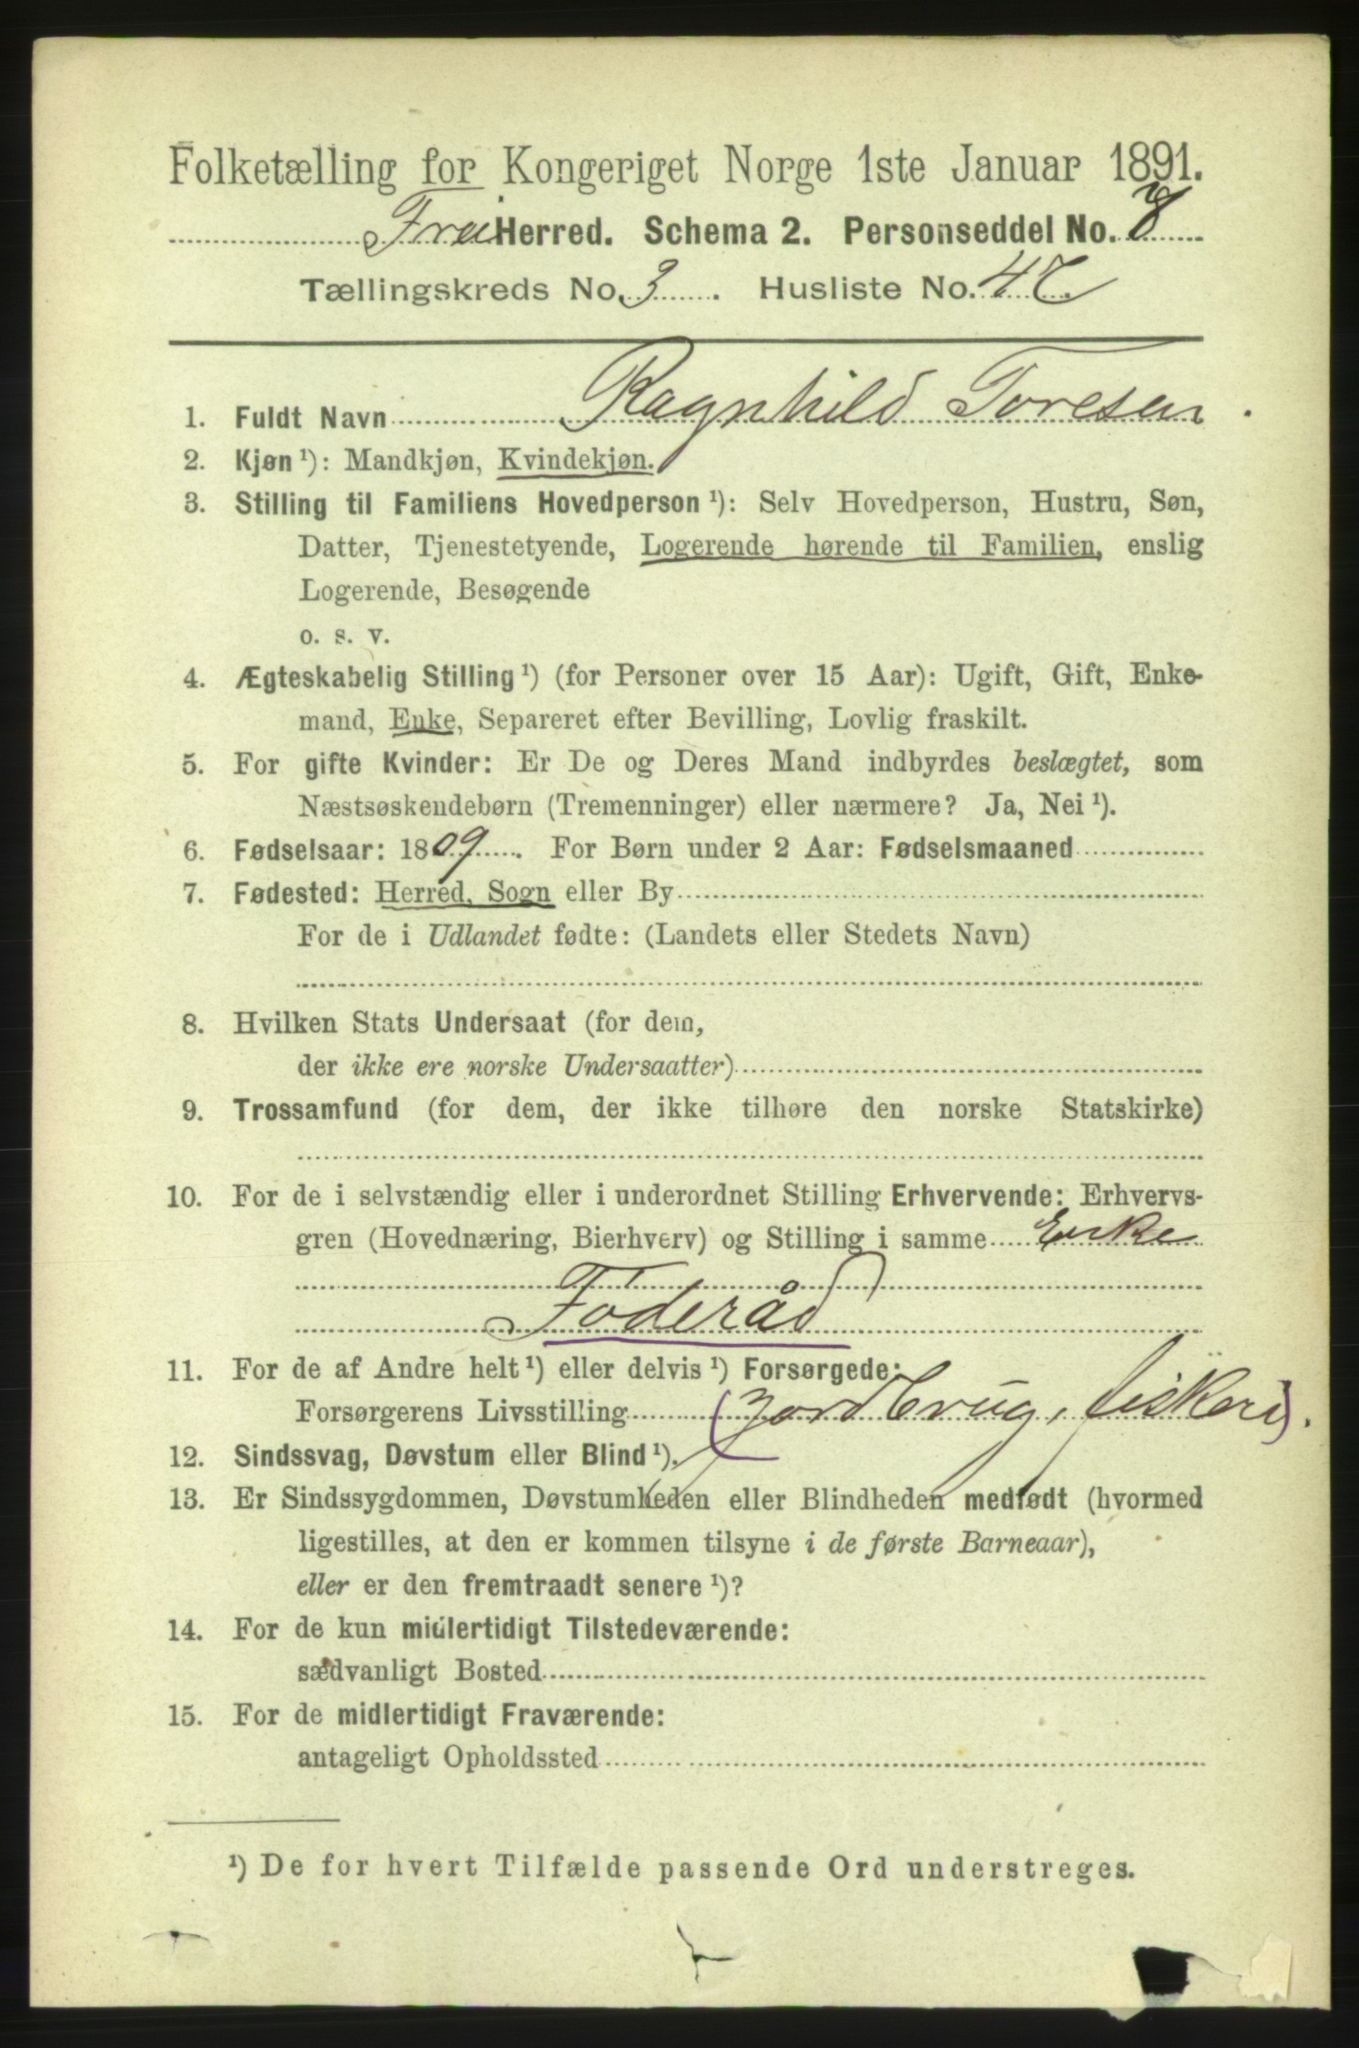 Folketælling for Kongeriget Norge 1ste Januar 1891.
Frei Herred. Schema 2. Personseddel No. 8
Tællingskreds No. 3. Husliste No. 47.
1. Fuldt Navn Ragnhild Toresen.
2. Kjøn ¹): Mandkjøn, Kvindekjøn.
3. Stilling til Familiens Hovedperson ¹): Selv Hovedperson, Hustru, Søn,
Datter, Tjenestetyende, Logerende hørende til Familien, enslig
Logerende, Besøgende
o. s. v.
4. Ægteskabelig Stilling ¹) (for Personer over 15 Aar): Ugift, Gift, Enke-
mand, Enke, Separeret efter Bevilling, Lovlig fraskilt.
5. For gifte Kvinder: Er De og Deres Mand indbyrdes beslægtet, som
Næstsøskendebørn (Tremenninger) eller nærmere? Ja, Nei ¹).
6. Fødselsaar: 1809. For Børn under 2 Aar: Fødselsmaaned
7. Fødested: Herred, Sogn eller By
For de i Udlandet fødte: (Landets eller Stedets Navn)
8. Hvilken Stats Undersaat (for dem,
der ikke ere norske Undersaatter)
9. Trossamfund (for dem, der ikke tilhøre den norske Statskirke)
10. For de i selvstændig eller i underordnet Stilling Erhvervende: Erhvervs-
gren (Hovednæring, Bierhverv) og Stilling i samme Enke
Foderåd
11. For de af Andre helt ¹) eller delvis ¹) Forsørgede:
Forsørgerens Livsstilling (Jordbrug, fiskeri).
12. Sindssvag, Døvstum eller Blind ¹).
13. Er Sindssygdommen, Døvstumheden eller Blindheden medfødt (hvormed
ligestilles, at den er kommen tilsyne i de første Barneaar),
eller er den fremtraadt senere ¹)?
14. For de kun midlertidigt Tilstedeværende:
sædvanligt Bosted
15. For de midlertidigt Fraværende:
antageligt Opholdssted
¹) De for hvert Tilfælde passende Ord understreges.